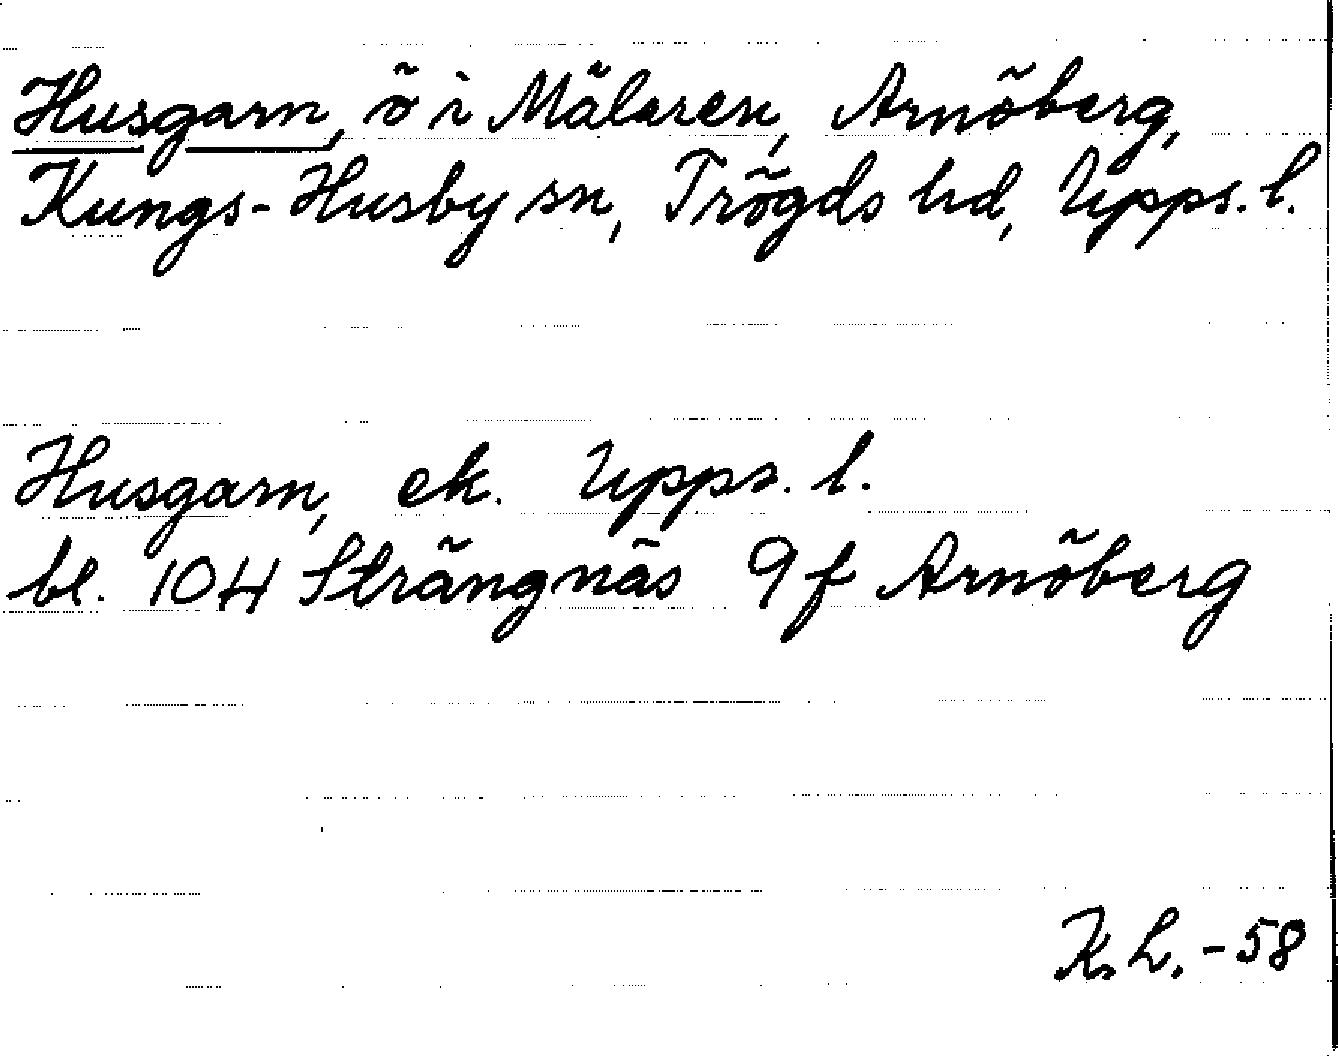 Husgarn, ö i Mälaren, Arnöberg,
Kungs-Husby sn, Trögds hd, Upps. l.
Husgarn, ek. Upps. l.
bl. 104 Strängnäs 9f Arnöberg
K. L. -58